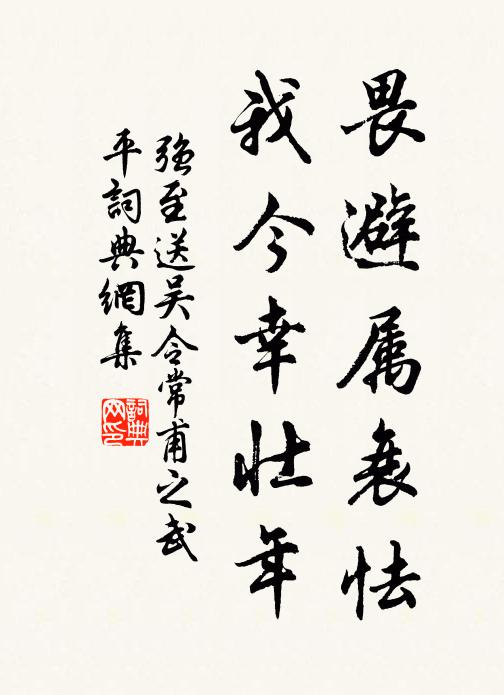 畏避属衰怯
我今幸壮年
强至送吴令常甫之武
平詞典網集
詞典网印